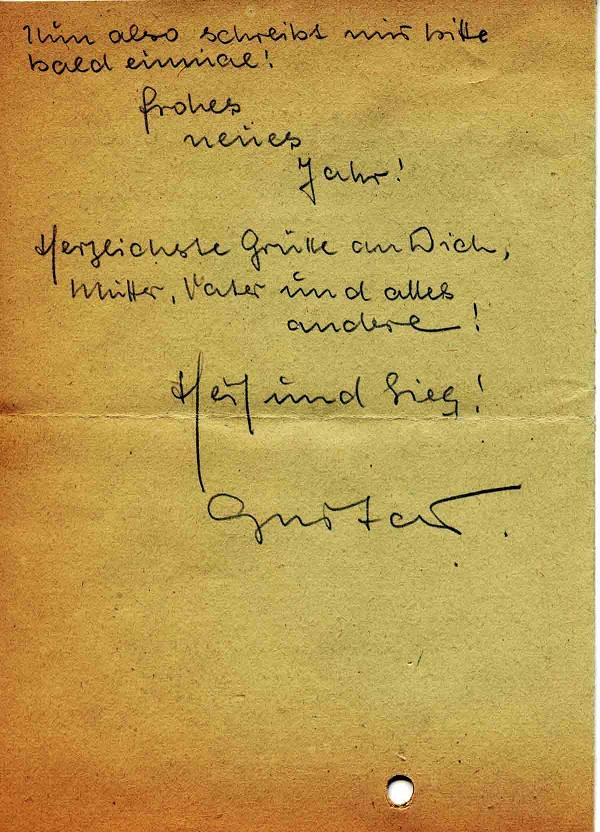 Nun also schreibt mir bitte
bald einmal!
frohes
neues
Jahr!
Herzlichste Grüße an Dich,
Mutter, Vater und alles
andere!
Heil und Sieg!
Gustav.